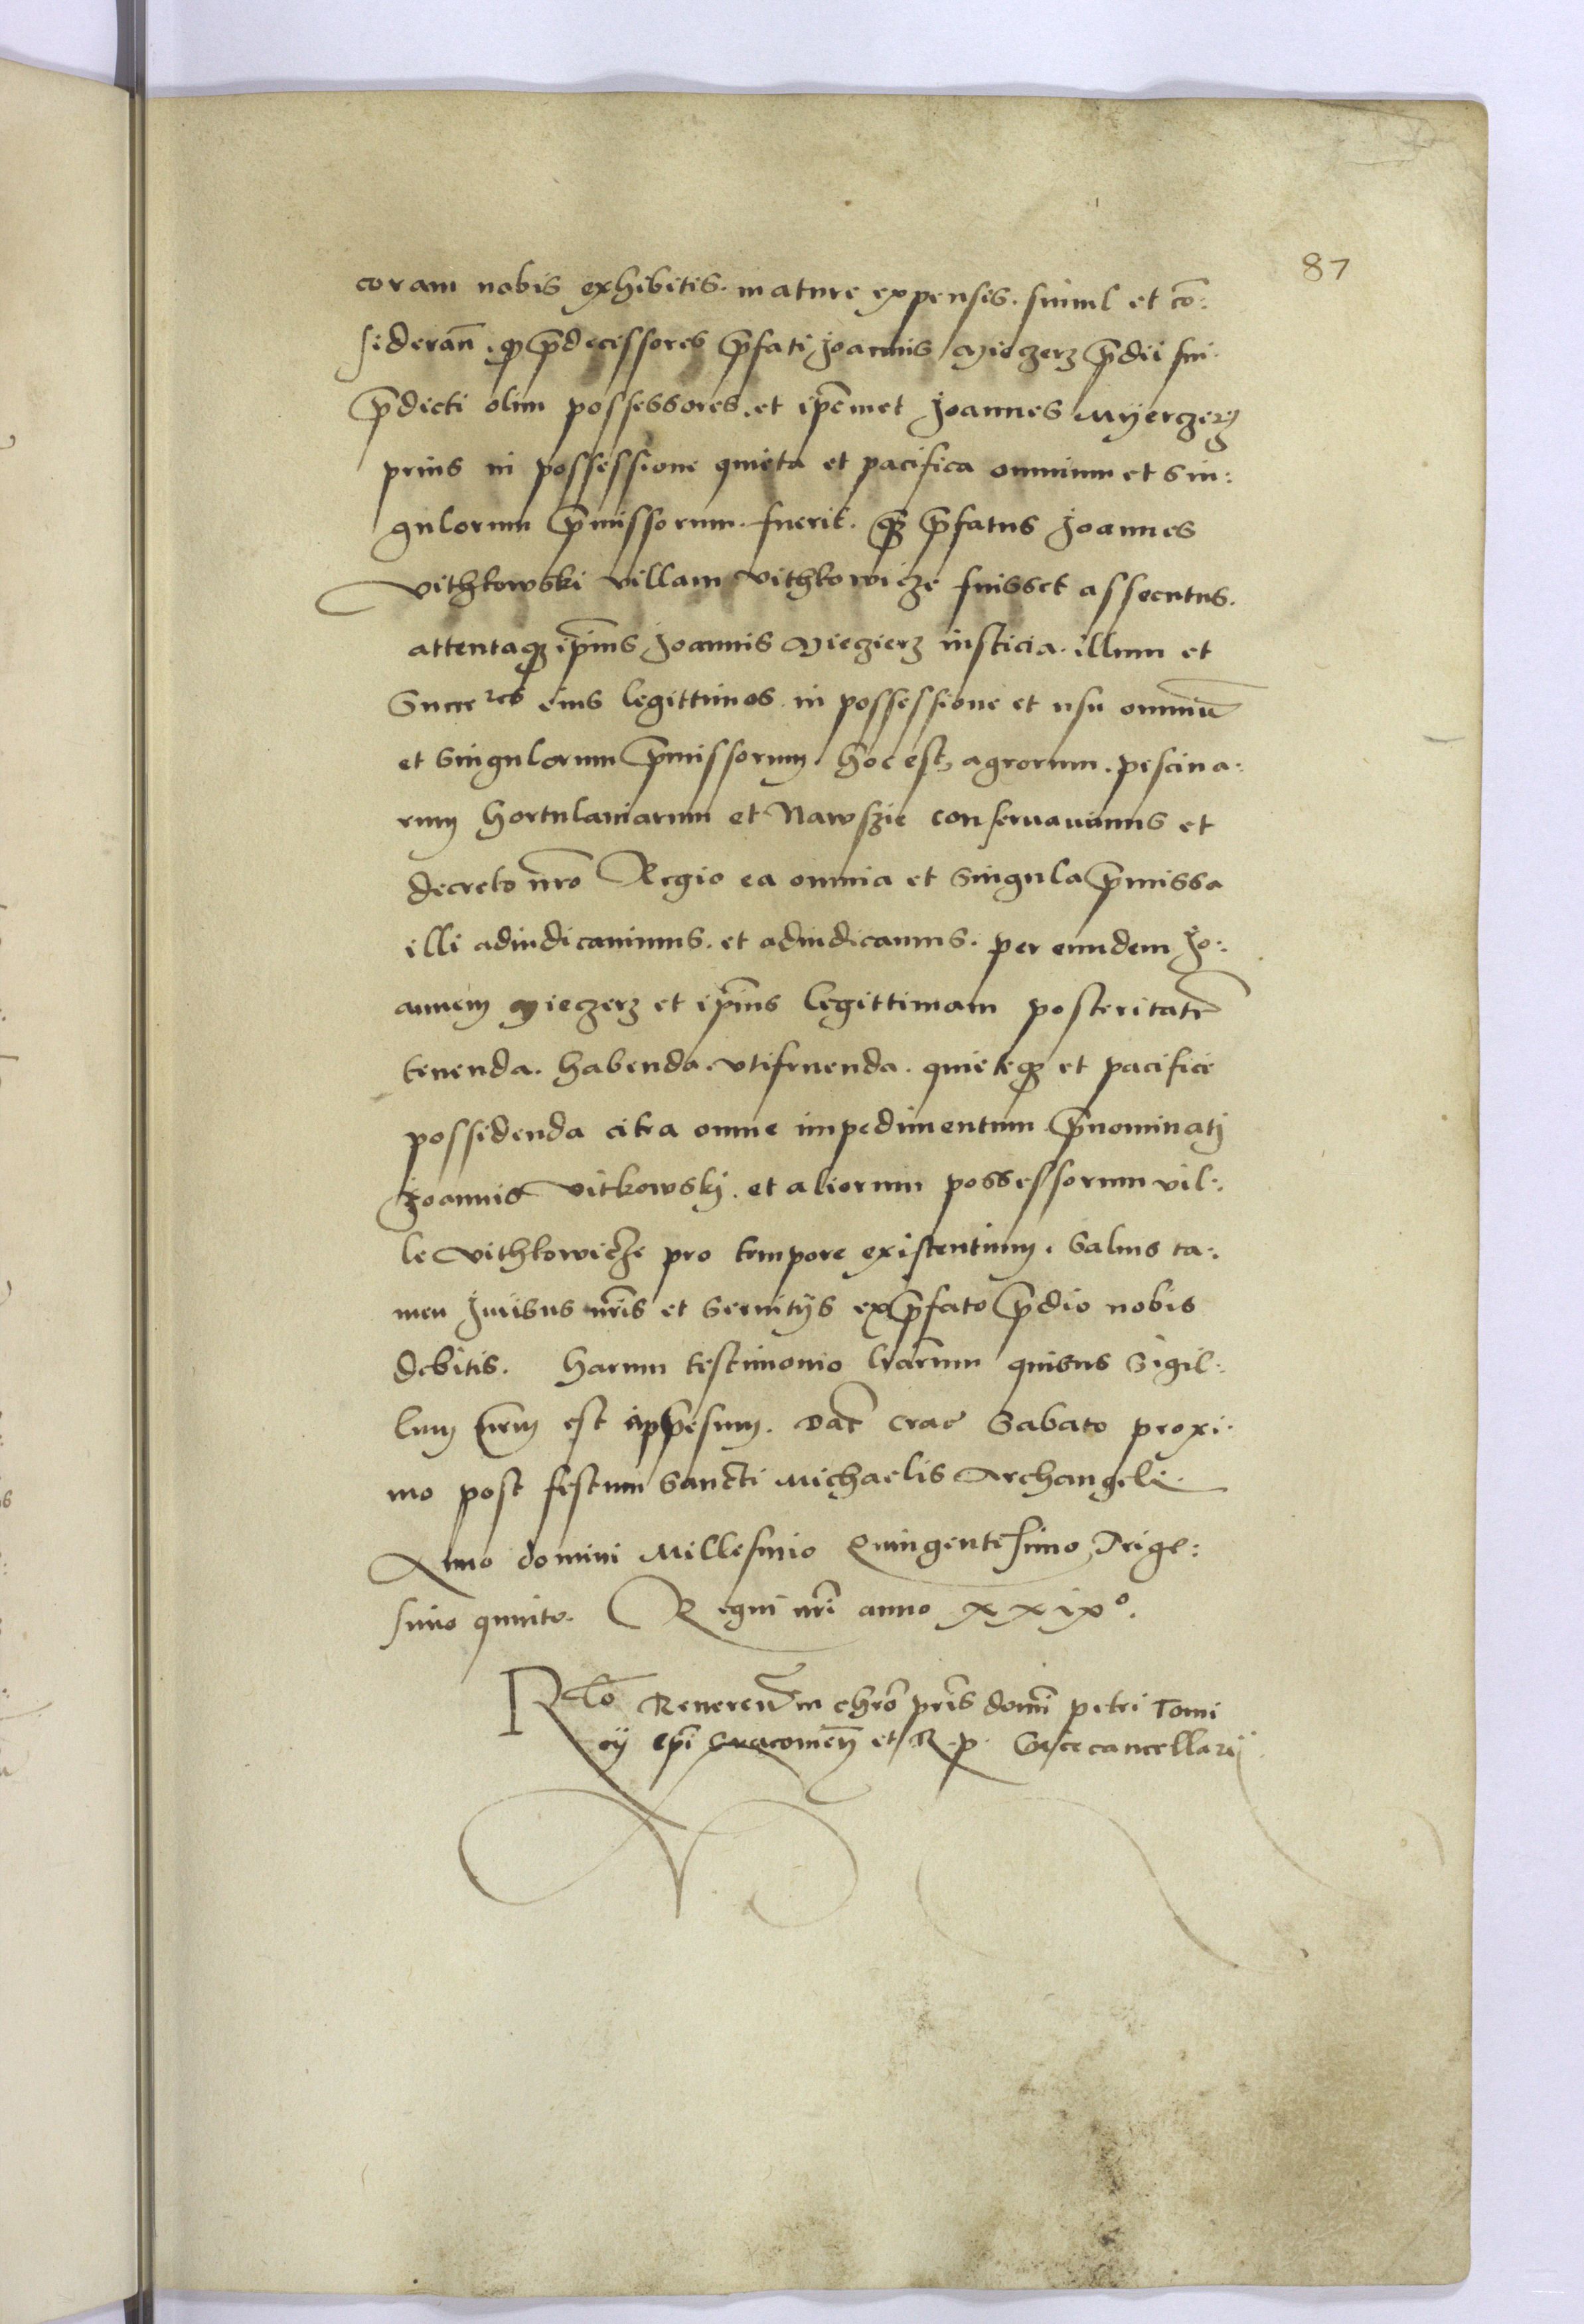 87
coram nobis exhibitis. mature expensis. simul et cō:
siderañ. ꝙ p̄decessores p̄fati Joannis Mieczerz p̄dii sui.
p̄dicti olim possessores. et ip̄emet Joannes Myerczerz
prius in possessione quieta et pacifica omnium et sin:
gulorum p̄missorum. fuerit. qꝫ p̄fatus Joannes
Vithkowski villam Vithkowicze fuisset assecutus.
attentaqꝫ ip̄ius Joannis Mieczierz iusticia. illum et
Succeres eius legittimos in possessione et usu omniū
et singulorum p̄missorum. hoc est, agrorum. piscina:
rum hortulaniarum et Nawszie conseruauimus et
decreto nr̄o Regio ea omnia et singula p̄missa
illi adiudicauimus. et adiudicamus. per eundem Jo:
annem Mieczerz et ip̄ius legittimam posteritatē
tenenda. habenda. vtifruenda. quieteqꝫ et pacifice
possidenda citra omne impedimentum p̄nominatj
Joannis Vitkowskj. et aliorum possessorum vil:
le Vithkowicze pro tempore existentium. Saluis ta:
men Juribus nr̄is et seruitijs ex p̄fato p̄dio nobis
debitis. Harum testimonio lr̄arum quibus Sigil:
lum nr̄m est appēsum. Dat̄ Crac̄ Sabato proxi:
mo post festum Sancti Michaelis Archangeli.
Anno domini Millesimo Quingentesimo Trige:
simo quinto. Regni nr̄i anno xxixº.
Rlō Reuereñ in chrō pr̄is domī petri Tomi
cij ep̄i Cracouien̄ et R. p. Vicecancellarij